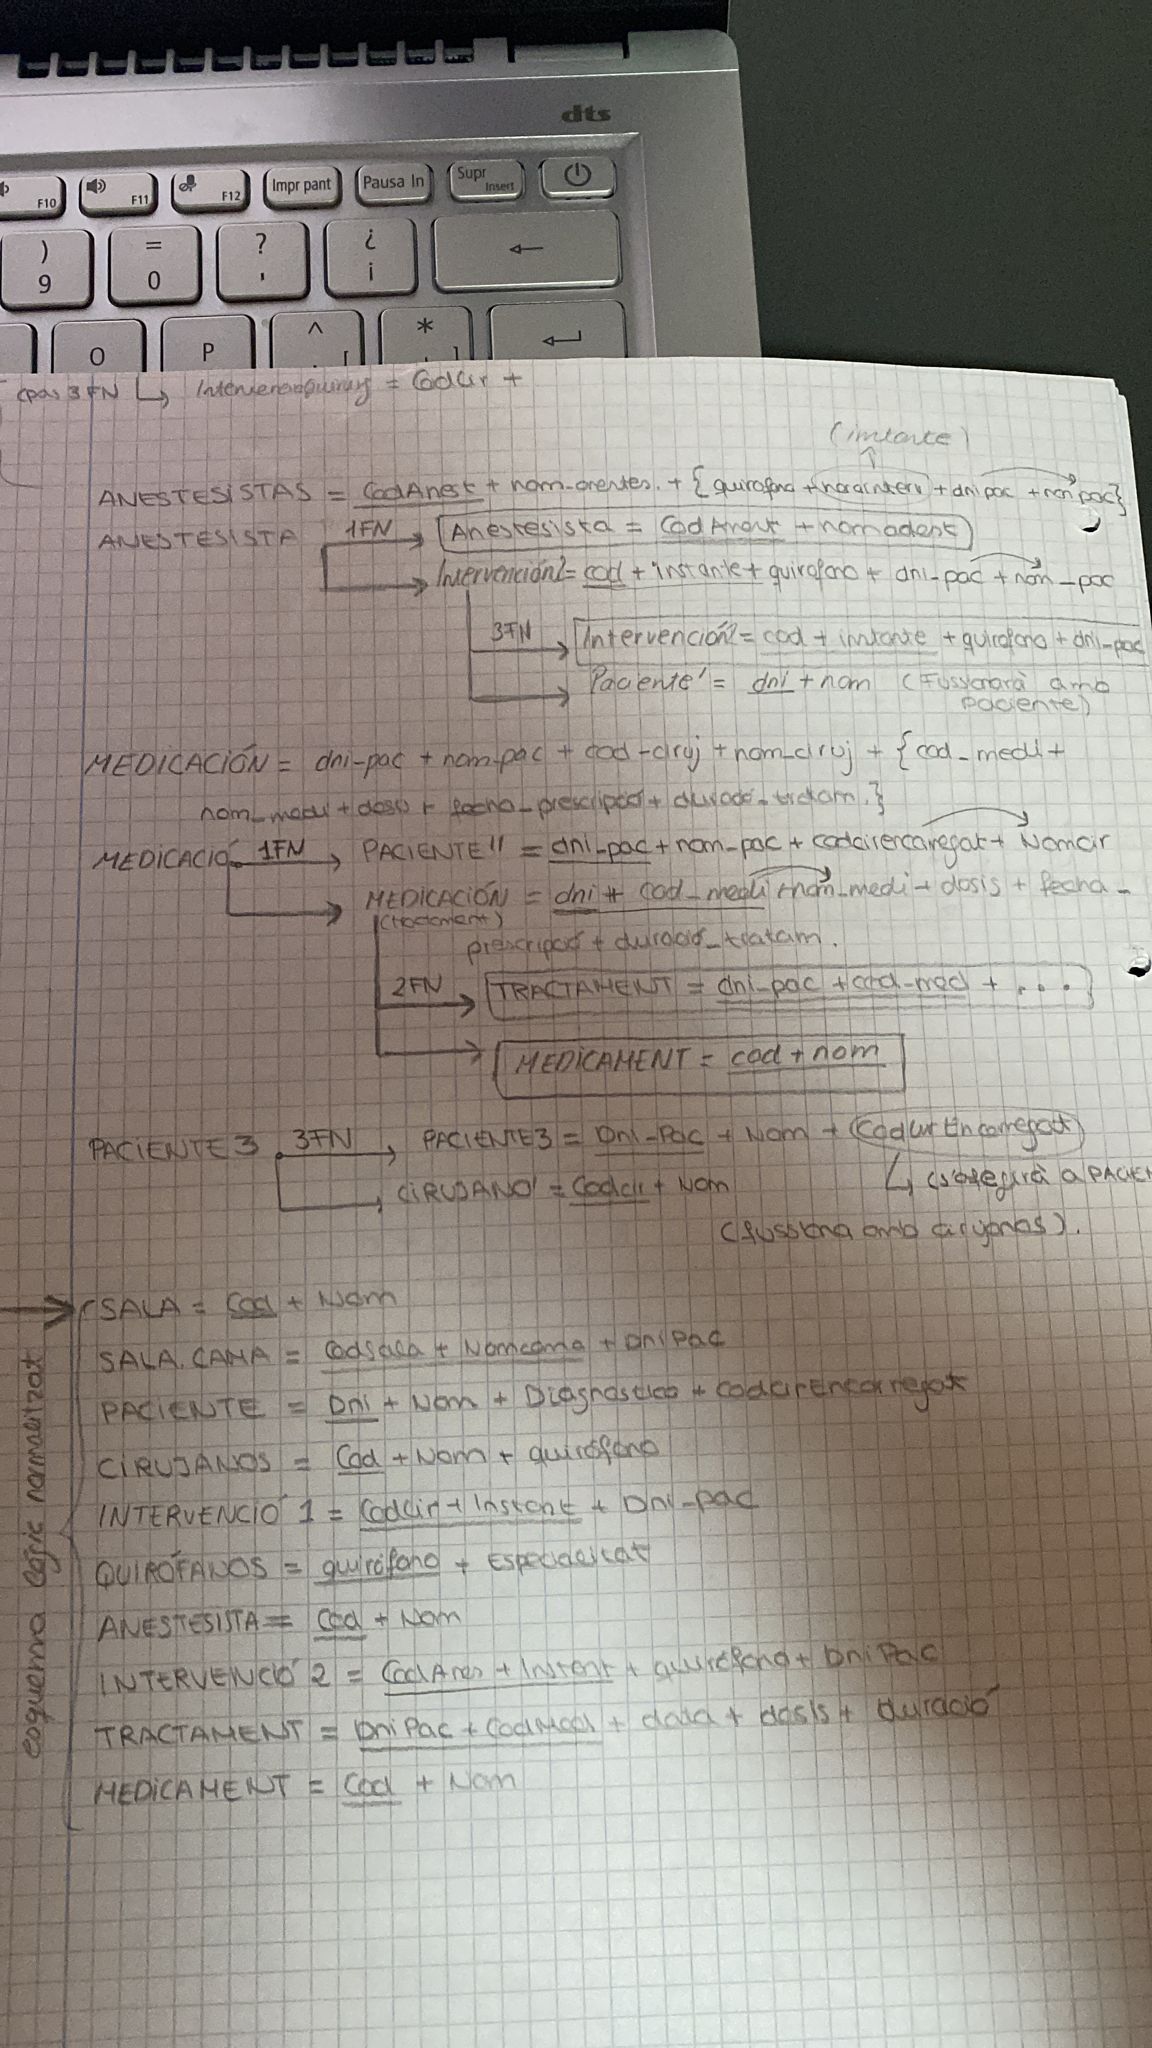 dts
F10
F11
F12
Impr pant
Pausa In
Supr
Insert
)
9
=
0
?
'
¿
¡
O
P
^
[
*
]
3FN = Codcir +
(instante)
ANESTESISTAS = CodAnest + nom- + { quirofono + horainterv + dni pac + nom pac}
ANESTESISTA 1FN Anestesista = CodAnest + nomadest
Intervención2= cod + instante + quirofono + dni-pac + nom-pac
3FN Intervención2= cod + instante + quirofono + dni-pac
Paciente' = dni + nom (Fussionarà amb
paciente)
MEDICACIÓN = dni-pac + nom-pac + cod-ciruj + nom_ciruj + {cod_medi +
nom_medi + dosis + fecha_prescripció + duració_tratam.}
MEDICACIÓ 1FN PACIENTE'' = dni_pac + nom_pac + codcirencarregat + Nomcir
MEDICACIÓN = dni + cod_medi + nom_medi + dosis + fecha-
(tractament)
prescripció + duració_tratam.
2FN TRACTAMENT = dni-pac + cod-med + ...
MEDICAMENT = cod + nom
PACIENTE 3 3FN PACIENTE3 = Dni-Pac + Nom + CodCirEncarregat
CIRUJANO' = Codcir + Nom (s'afegirà a PACIEN
(fussiona amb cirujanos).
SALA = Cod + Nom
SALA.CAMA = CodSala + Nomcama + DniPac
PACIENTE = Dni + Nom + Diagnostico + CodcirEncarregat
CIRUJANOS = Cod + Nom + quirófono
INTERVENCIÓ 1 = CodCir + Instant + Dni-pac
QUIRÓFANOS = quirófono + Especialitat
ANESTESISTA = Cod + Nom
INTERVENCIÓ 2 = CodAnes + Instant + quirófono + DniPac
TRACTAMENT = DniPac + CodMed + data + dosis + duració
MEDICAMENT = Cod + Nom
esquema lògic normalitzat